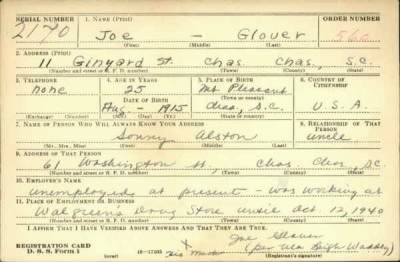 SERIAL NUMBER 1. NAME (Print) ORDER NUMBER
2170 Joe — Glover 560
(First) (Middle) (Last)
2. ADDRESS (Print)
11 Ginyard St. Chas. Chas., S.C.
(Number and street or R. F. D. number) (Town) (County) (State)
3. TELEPHONE 4. AGE IN YEARS 5. PLACE OF BIRTH 6. COUNTRY OF CITIZENSHIP
none 25 Mt. Pleasant
DATE OF BIRTH (Town or county)
Aug. - 1915 Chas., S.C. U.S.A.
(Exchange) (Number) (Mo.) (Day) (Yr.) (State or country)
7. NAME OF PERSON WHO WILL ALWAYS KNOW YOUR ADDRESS 8. RELATIONSHIP OF THAT PERSON
Sonny Alston uncle
(Mr., Mrs., Miss) (First) (Middle) (Last)
9. ADDRESS OF THAT PERSON
61 Washington St., Chas Chas., S.C.
(Number and street or R. F. D. number) (Town) (County) (State)
10. EMPLOYER'S NAME
unemployed at present - was working at
11. PLACE OF EMPLOYMENT OR BUSINESS
Walgreen's Drug Store until Oct 12, 1940
(Number and street or R. F. D. number) (Town) (County) (State)
I AFFIRM THAT I HAVE VERIFIED ABOVE ANSWERS AND THAT THEY ARE TRUE.
Joe Glover
REGISTRATION CARD X (per
D. S. S. Form 1 16—17105 his Mark (Registrant's signature)
(over)